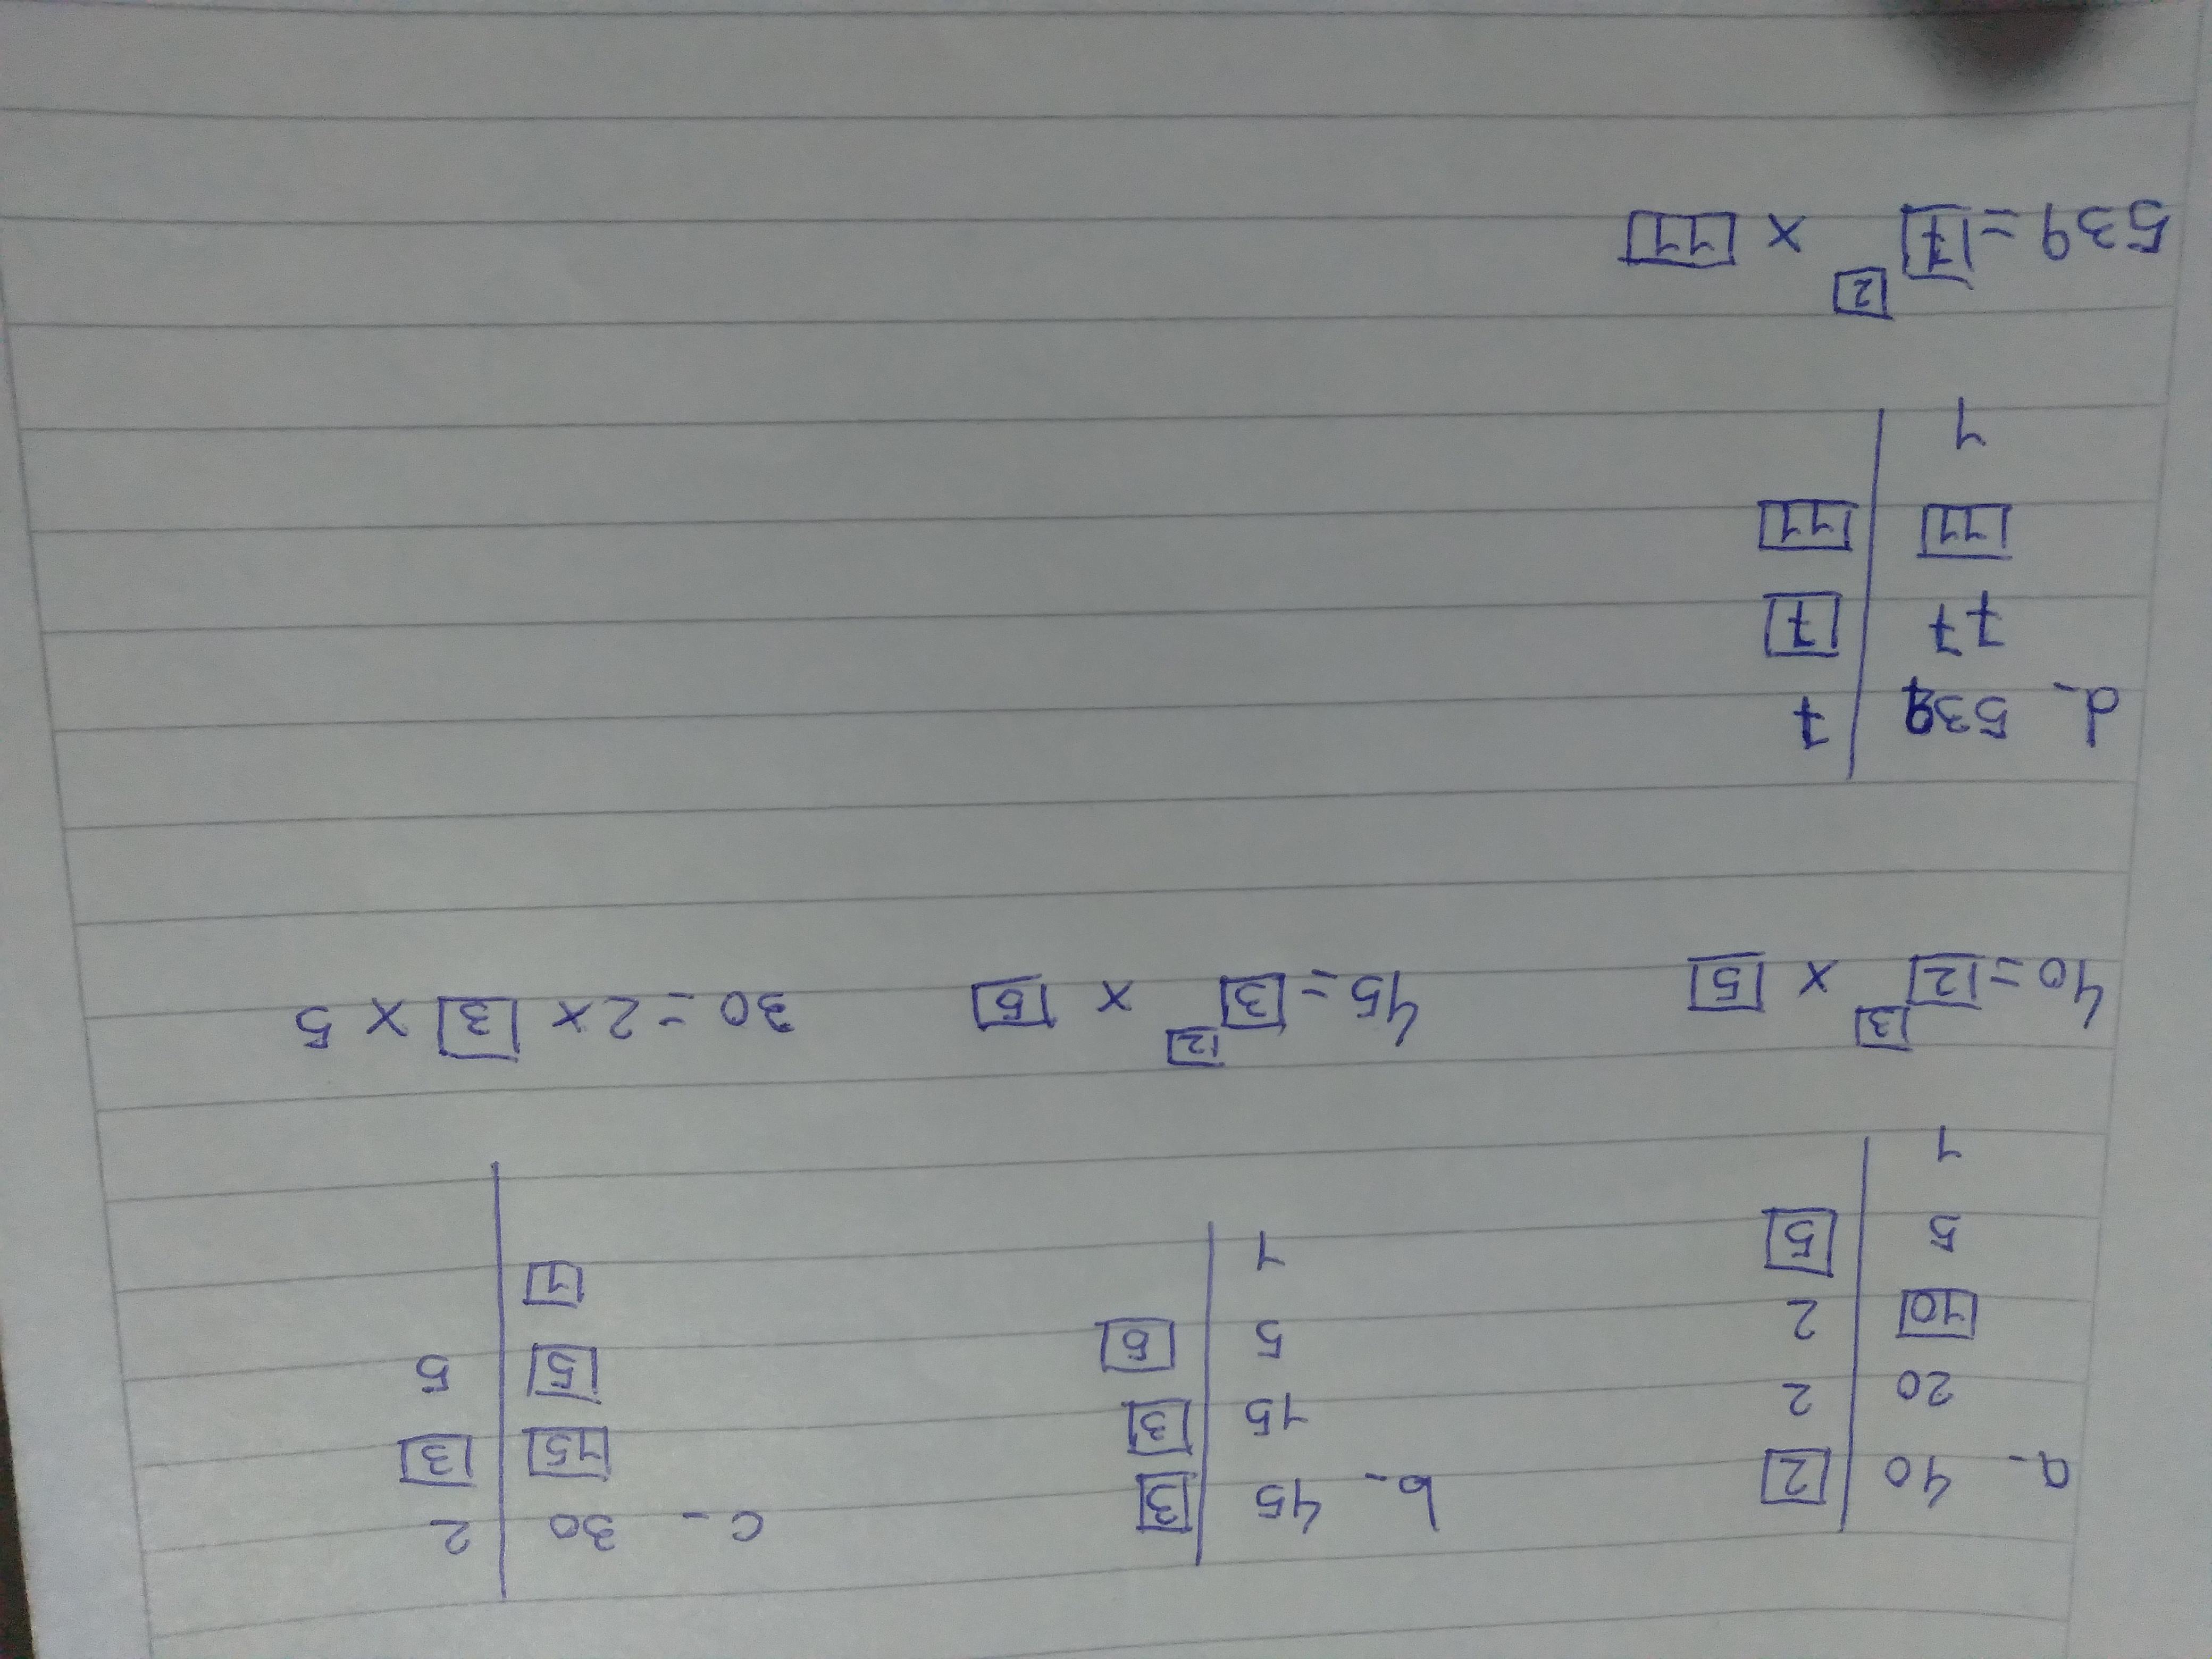 a- 40 | 2 b- 45 | 3 c- 30 | 2
20 | 2 15 | 3 15 | 3
10 | 2 5 | 5 5 | 5
5 | 5 1 | 1 |
1 |
40 = 2^3 x 5 45 = 3^2 x 5 30 = 2 x 3 x 5
d- 539 | 7
77 | 7
11 | 11
1 |
539 = 7^2 x 11